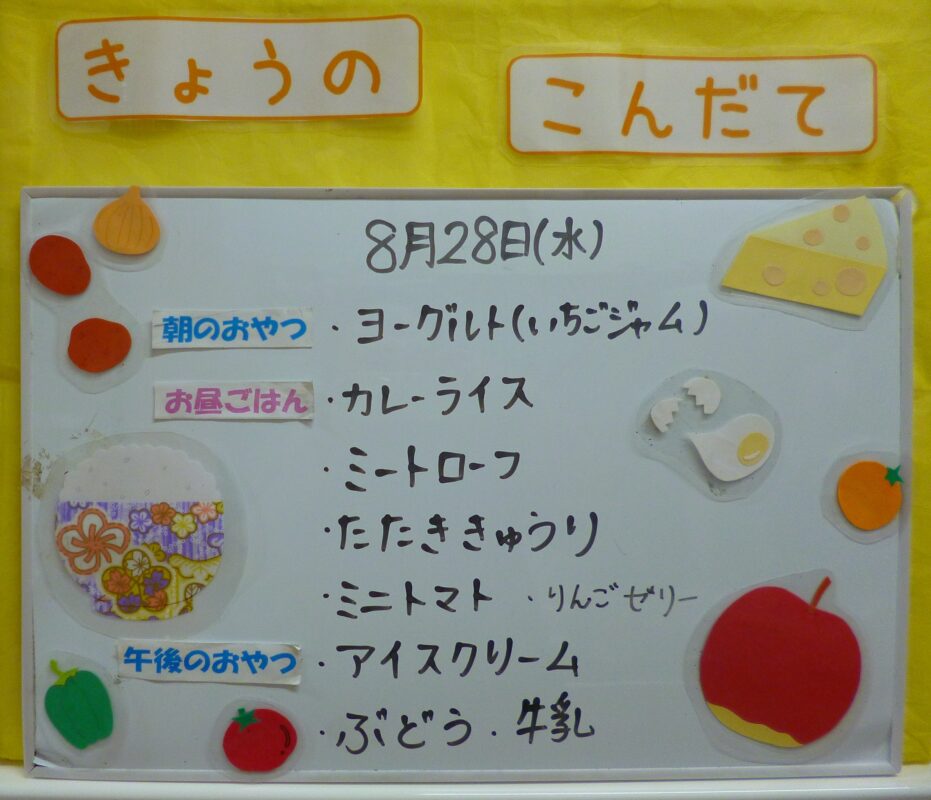 きょうの こんだて
8月28日(水)
朝のおやつ ・ヨーグルト(いちごジャム)
お昼ごはん ・カレーライス
・ミートローフ
・たたききゅうり
・ミニトマト ・りんごゼリー
午後のおやつ ・アイスクリーム
・ぶどう・牛乳